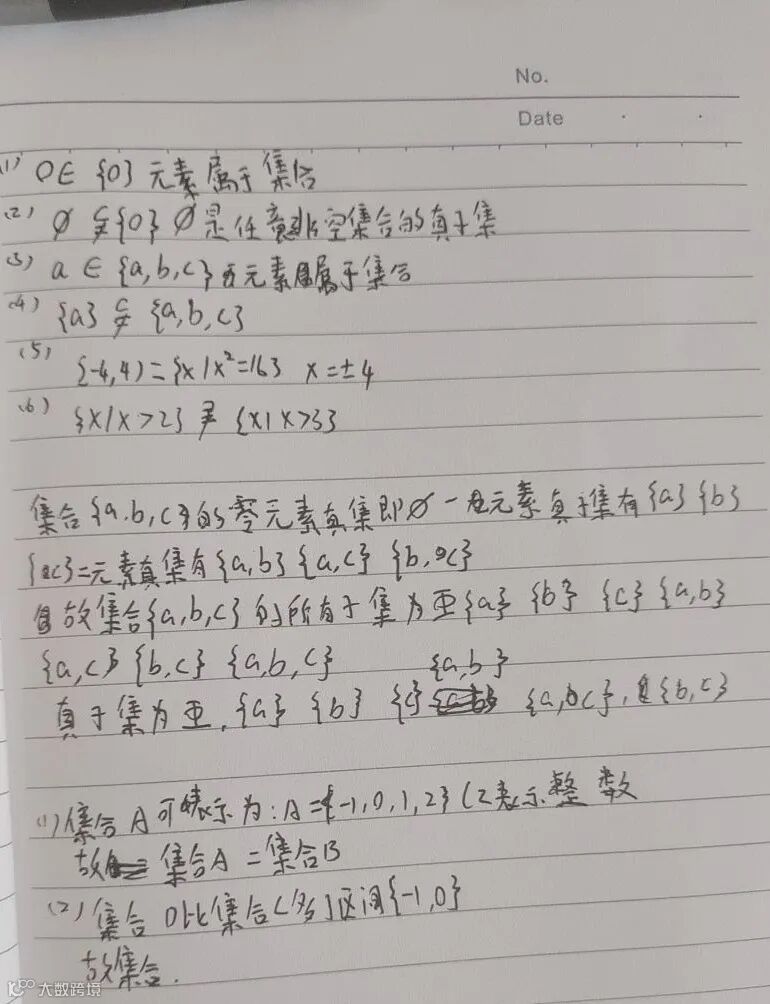 No.
Date
(1) 0∈ {0} 元素属于集合
(2) ∅ ⫋{0} ∅是任意非空集合的真子集
(3) a ∈ {a,b,c} 元素属于集合
(4) {a} ⫋ {a,b,c}
(5) {-4,4)={x|x²=16} x=±4
(6) {x|x>2} ⫌ {x|x>3}
集合{a.b,c}的零元素真集即∅一元素真子集有{a} {b}
{c}二元素真集有{a,b} {a,c} {b,c}
故集合{a,b,c}的所有子集为 {a} {b} {c} {a,b}
{a,c} {b,c} {a,b,c}
{a,b}
真子集为 , {a} {b} {c} {a,c}, {b,c}
(1)集合A可表示为:A={-1,0,1,2}(Z表示整数
故 集合A=集合B
(2)集合D比集合C多了区间{-1,0}
故集合.
大数跨境